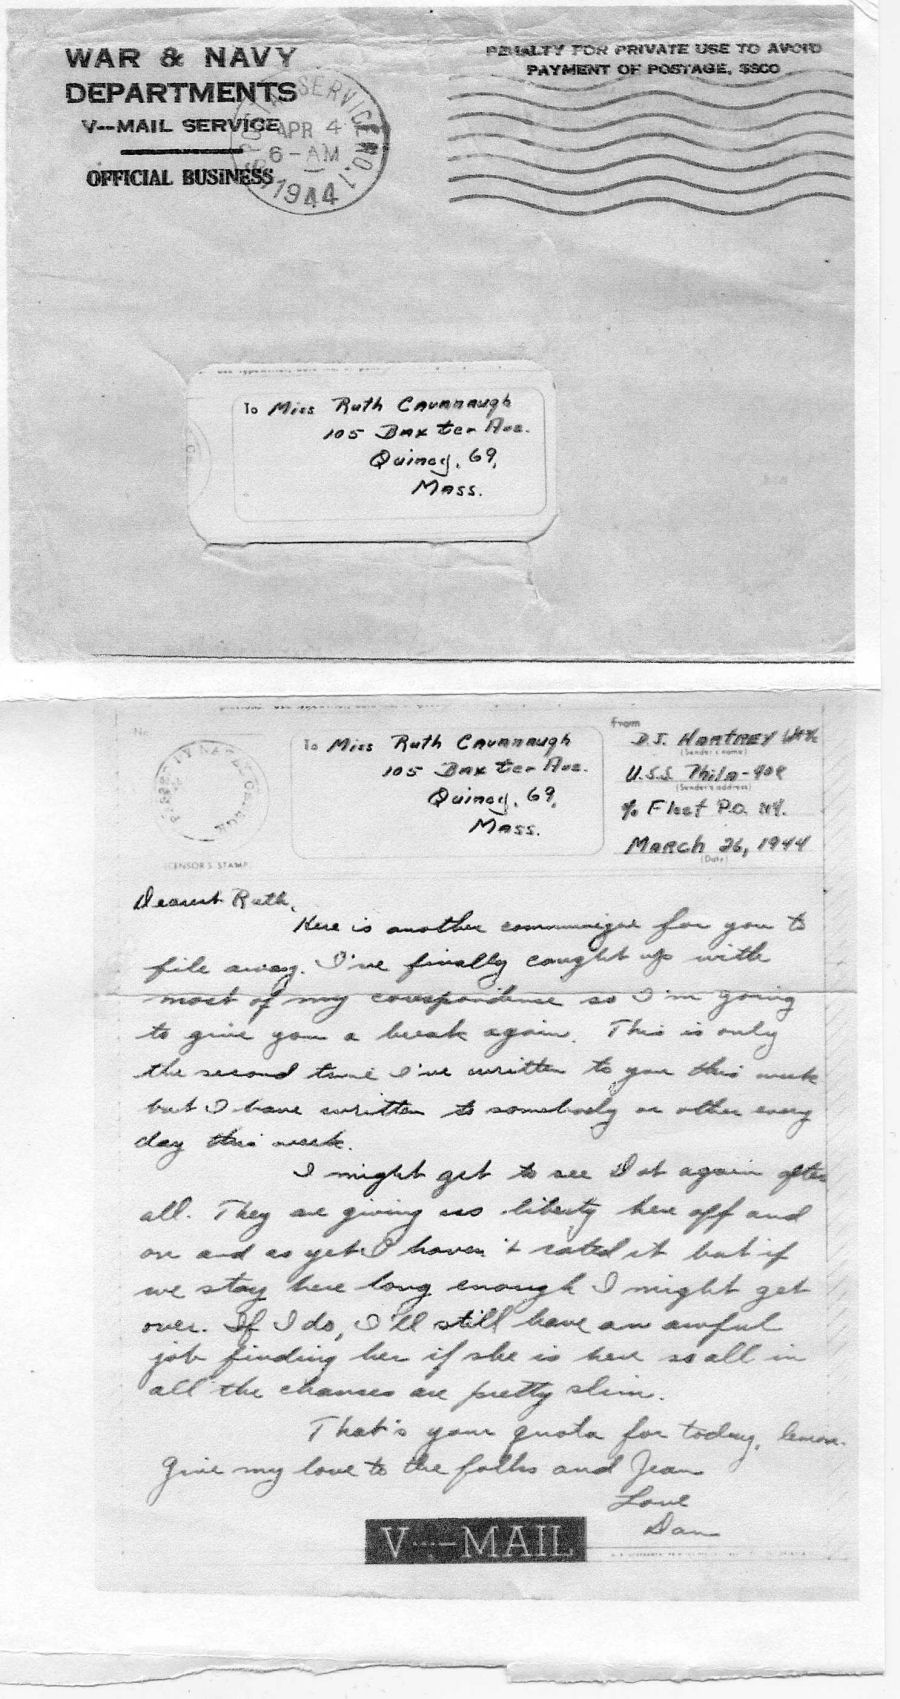 WAR & NAVY
DEPARTMENTS
V---MAIL SERVICE
OFFICIAL BUSINESS
SERVICE NO. 1
APR 4
6-AM
1944
PENALTY FOR PRIVATE USE TO AVOID
PAYMENT OF POSTAGE, $300
To Miss Ruth Cavanaugh
105 Baxter Ave.
Quincy, 69,
Mass.
No.
CENSOR'S STAMP
To Miss Ruth Cavanaugh
105 Baxter Ave.
Quincy, 69,
Mass.
From
D.J. Hartney
(Sender's name)
U.S.S. Phila-
(Sender's address)
c/o Fleet P.O. NY.
March 26, 1944
(Date)
Dearest Ruth,
Here is another communique for you to
file away. I've finally caught up with
most of my corespondence so I'm going
to give you a break again. This is only
the second time I've written to you this week
but I have written to somebody or other every
day this week.
I might get to see Dot again after
all. They are giving us liberty here off and
on and as yet I haven't rated it but if
we stay here long enough I might get
over. If I do, I'll still have an awful
job finding her if she is here so all in
all the chances are pretty slim.
That's your quota for today,
Give my love to the folks and Jean
Love
Dan
V---MAIL